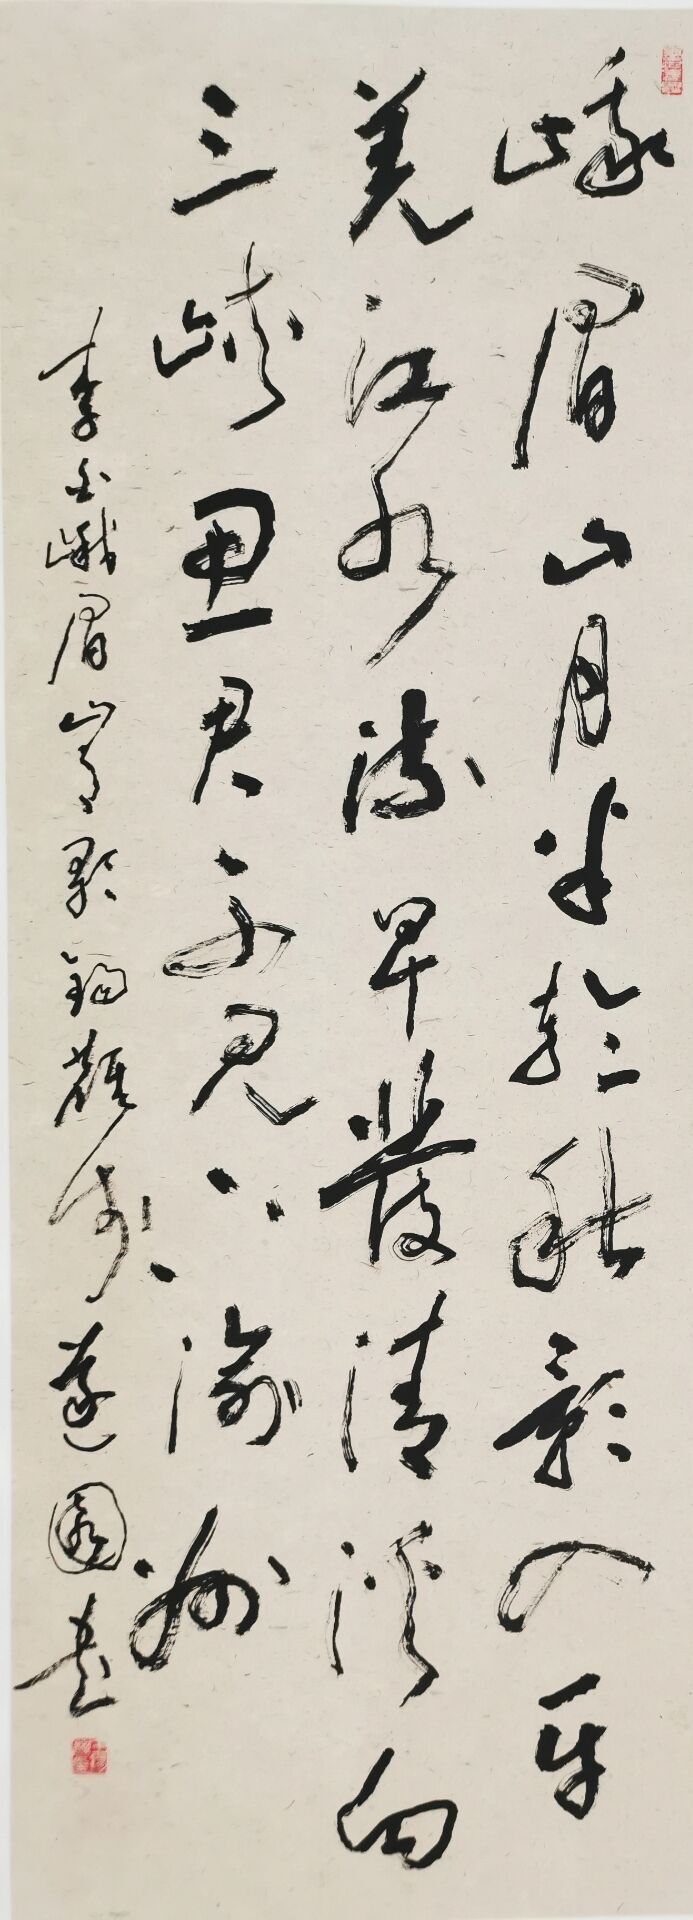 峨眉山月半輪秋影入平
羌江水流早發清溪向
三峽思君不見下渝州
李白峨眉山月歌 園書